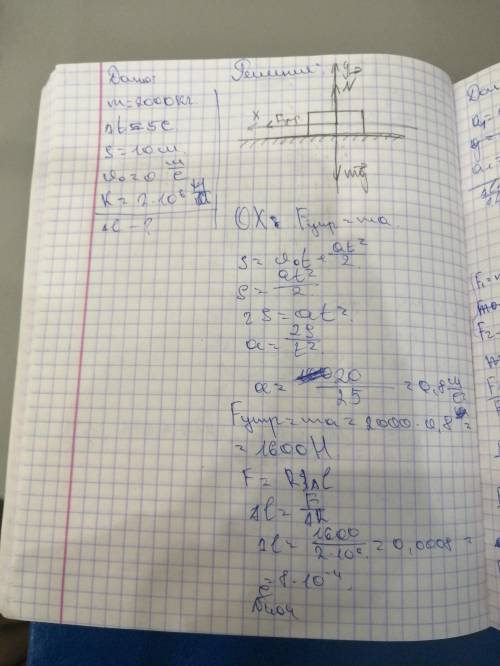 Дано:
m=2000кг
Δt=5с
S=10м
υ₀=0 м/с
K=2·10⁶ Н/м
Δl-?
Решение:
y
N
X Fупр
mg
OX: Fупр=ma
S=υ₀t+at²/2
S=at²/2
2S=at²
a=2S/t²
a=20/25=0,8м/с
Fупр=ma=2000·0,8=
=1600Н
F=kΔl
Δl=F/k
Δl=1600/2·10⁶=0,0008=
=8·10⁻⁴